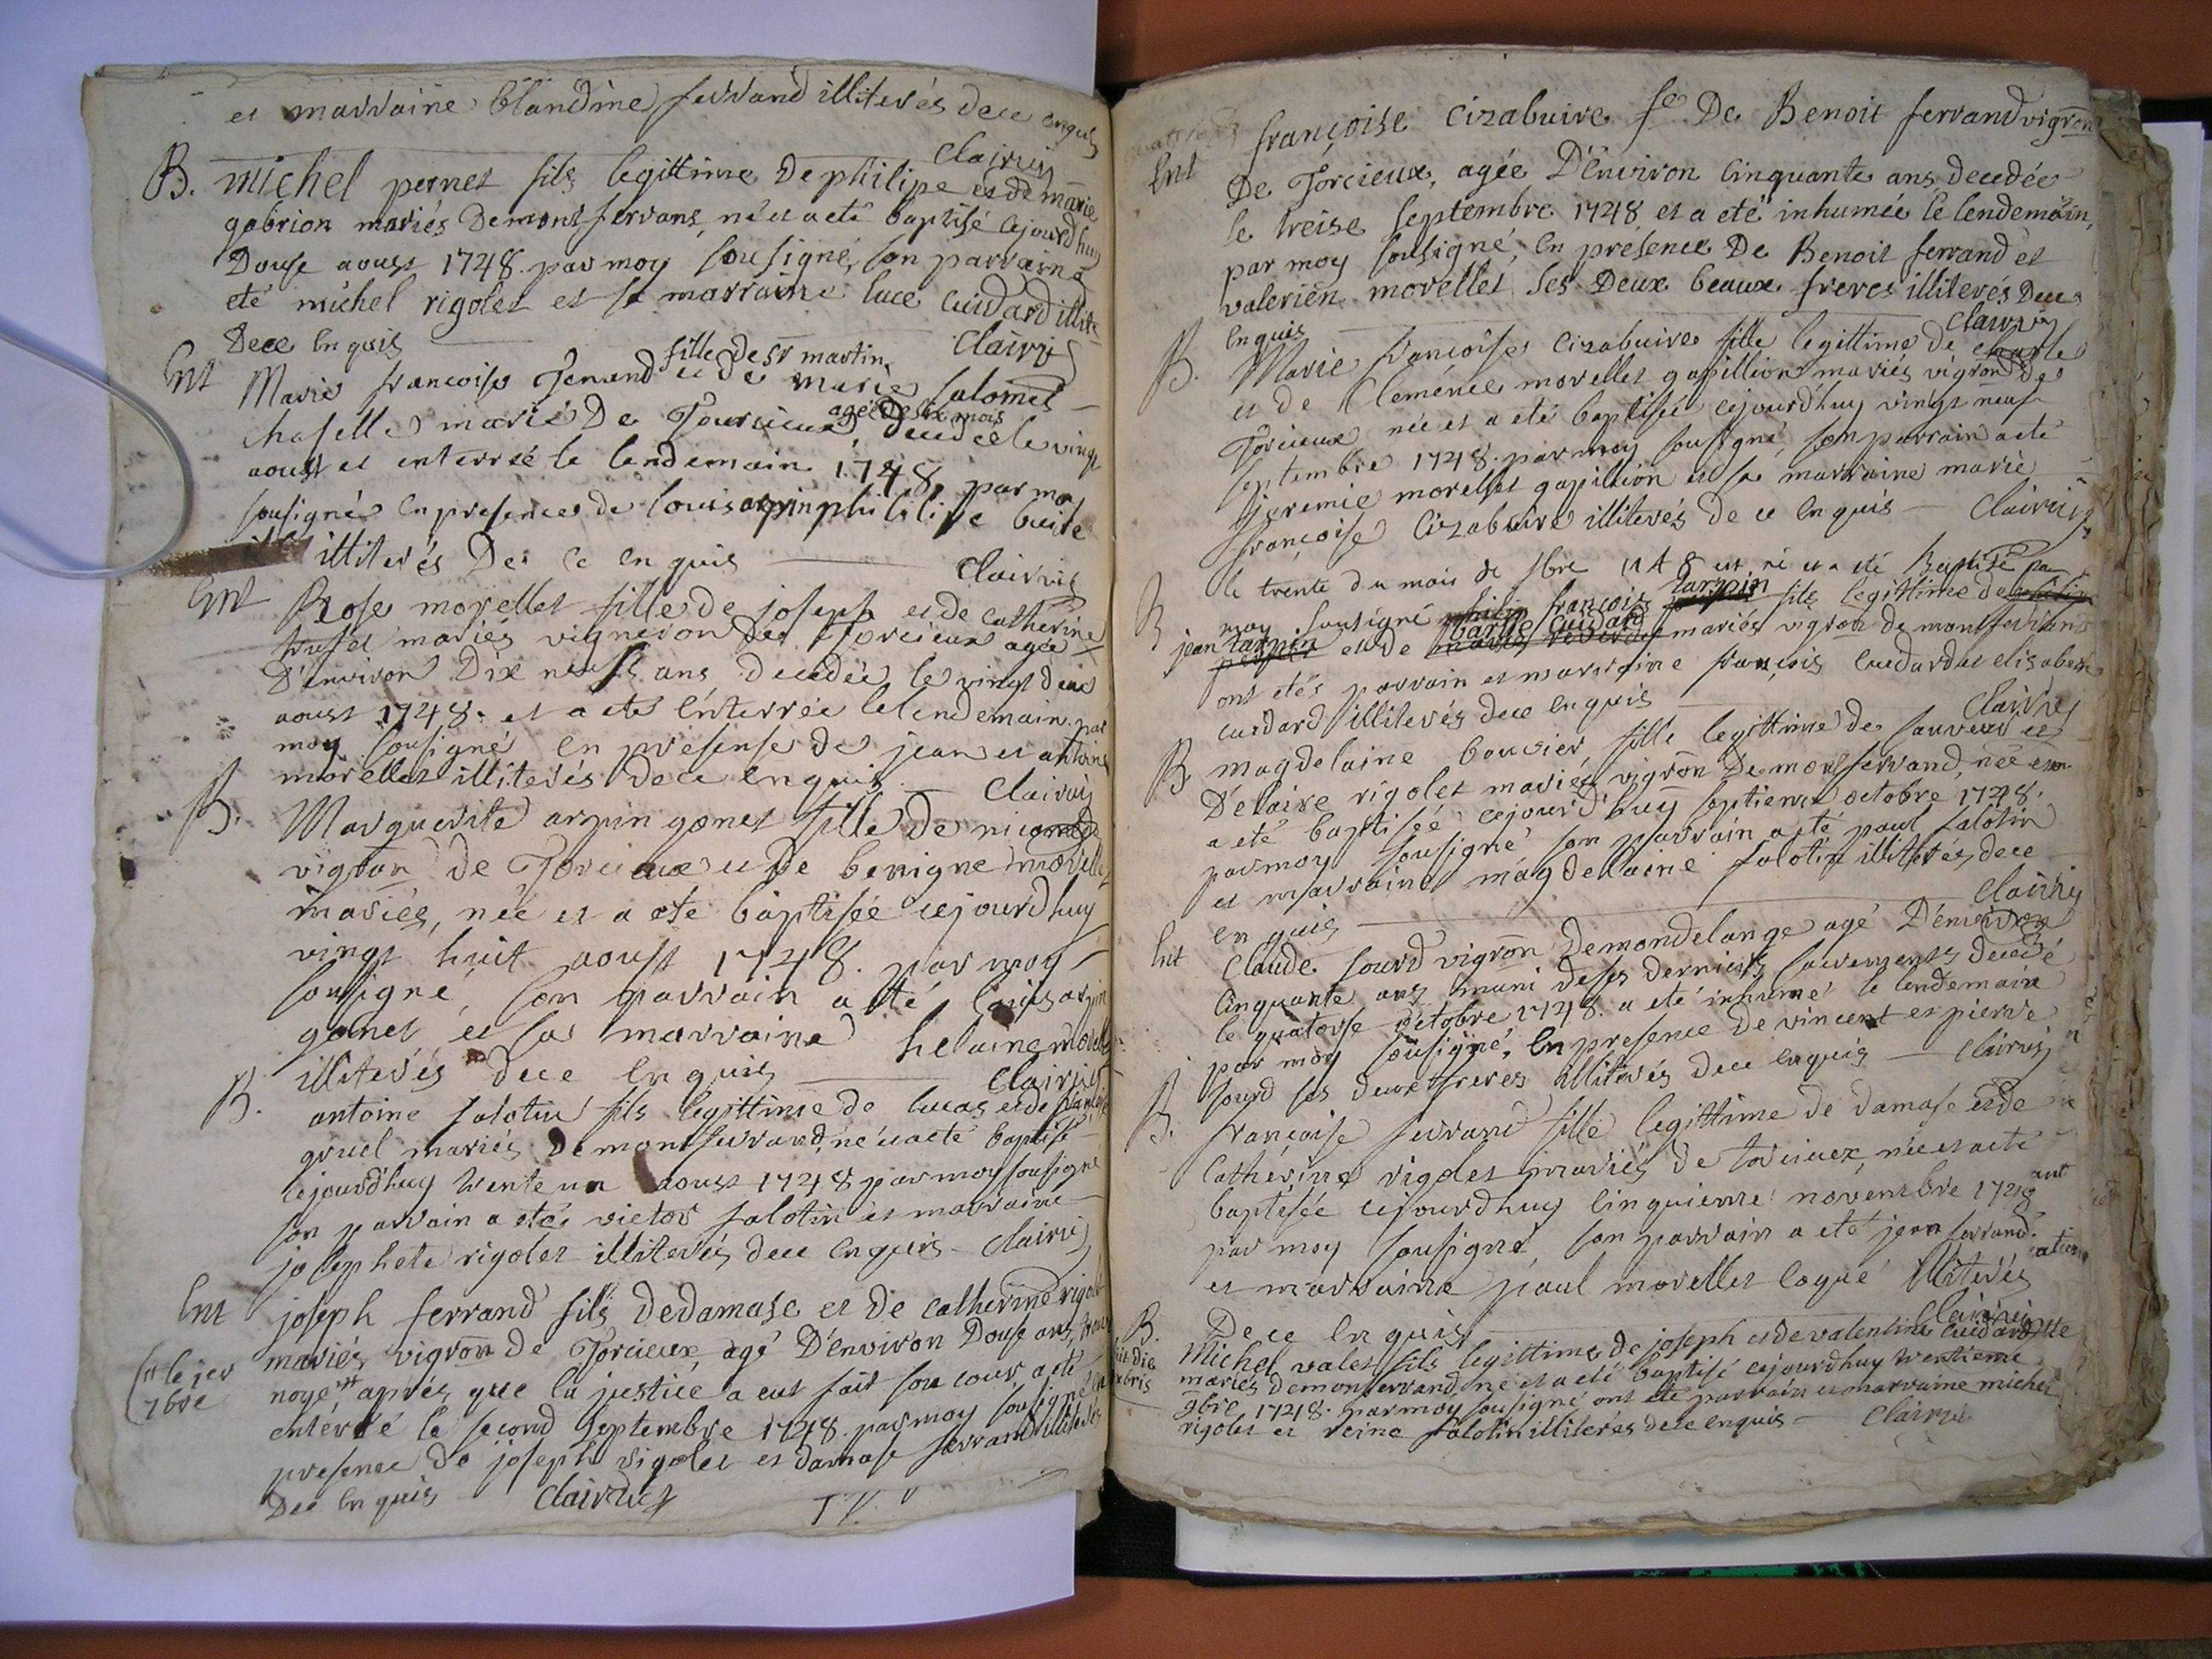 et marraine blandine ferrand illiterés dece enquis
Clairvis
B. michel pernet fils legittime de philipe et de marie
gabrion mariés de montferrans, né et a eté baptisé cejourdhuy
Douse aoust 1748. par moy sousigné, son parrain a
eté michel rigolet et sa marraine luce cuidard illite
Dece enquis Clairvis
fille de Sr martin
Ent Marie francoise ferrand et de marie salomée
agée de six mois
chaselle mariés De Torcieux, decedée le vingt
aoust et enterrée le lendemain 1748, par moy
sousigné en presence de louis arpin phililipe buire
illiterés De ce en quis Clairvis
Ent Rose morellet fille de joseph et de catherine
mariés vigneron de Torcieux agée
D'environ Dix neuf ans decedée le vingt deux
aoust 1748. et a eté enterrée le lendemain par
moy sousigné en presense de jean et antoine
morellet illiterés dece enquis Clairvis
B. Marguerite arpin gonet fille de nicomede
vigron de Torcieux et de benigne morellet
mariés, née et a eté baptisée cejourdhuy
vingt huit aoust 1748. par moy
sousigné, son parrain a eté louis arpin
gonet et sa marraine helaine morellet
illiterés dece enquis Clairvis
B. antoine salotin fils legittime de lucas et de
gruel mariés de monferrand, né et a eté baptisé
cejourdhuy trente un aoust 1748 par moy sousigné
son parrain a eté victor salotin et marraine
josephete rigolet illiterés dece enquis Clairvis
Ent joseph ferrand fils de damase et de catherine rigolet
mariés vigron de Torcieux, agé D'environ Douse ans,
le jer
7bre
noyé aprés que la justice a eut fait son cour, a eté
enterré le second Septembre 1748. par moy sousigné en
presence de joseph rigolet et damase ferrand illiterés
Dece enquis Clairvis
Ent françoise cizabuire fe De Benoit ferrand vigron
De Torcieux, agée D'environ Cinquante ans decedée
le treise Septembre 1748 et a eté inhumée le lendemain,
par moy sousigné, en présence De Benoit ferrand et
valerien morellet ses Deux beaux freres illiterés Dece
enquis Clairvis
B. Marie francoise cizabuire fille legittime de charle
et de Clemence morellet gapillion mariés vigron de
Torcieux née et a eté baptisée cejourdhuy vingt neuf
septembre 1748. par moy sousigné, son parrain a eté
jeremie morellet gapillion et sa marraine marie
françoise Cizabuire illiterés de ce enquis Clairvis
B le trente du mois de 7bre 1748 est né et a eté Baptisé par
moy sousigné françois tarpin fils legittime de
jean tarpin et de barbe cuidard mariés vigron de montferrans
ont etés parrain et marraine françois cuidard et elisabeth
cuidard illiterés dece enquis Clairvis
B magdelaine bouvier fille legittime de sauveur et
D'elaire rigolet mariés vigron De montferrand, née et
a eté baptisée cejourd'huy septieme octobre 1748.
par moy sousigné son parrain a eté paul salotin
et marraine magdelaine salotin illiterés, dece
en quis Clairvis
Ent Claude sourd vigron Demondelange agé D'environ
Cinquante ans muni de ses derniers sacrements decedé
le quatorse octobre 1748. a eté inhumé le lendemain
par moy sousigné, en presence de vincent et pierre
sourd ses deux freres illiterés dece enquis Clairvis
B. françoise ferrand fille legittime de damase et de
Catherine rigolet mariés de torcieux, née et a eté
baptisée cejourdhuy Cinquieme novembre 1748
par moy sousigné son parrain a eté jean ferrand
et marraine paul morellet coque illiterés
Dece enquis Clairvis
B. Michel valet fils legittime de joseph et de valentine cuidard
mariés de monferrand, né et a eté baptisé cejourdhuy trentieme
9bre 1748. par moy sousigné ont eté parrain et marraine michel
rigolet et reine salotin illiterés dece enquis Clairvis